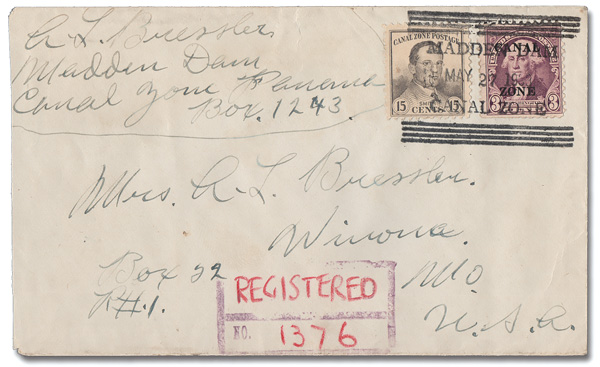 A L Bressler
Madden Dam
Canal Zone Panama
Box. 1243.
CANAL ZONE POSTAGE
15 CENTS 15
CANAL
ZONE
3 3
MADDEN DAM
MAY 2
CANAL ZONE
Mrs. A L Bressler.
Winona.
Box 22
Mo
R#.1.
U.S.A.
REGISTERED
NO. 1376